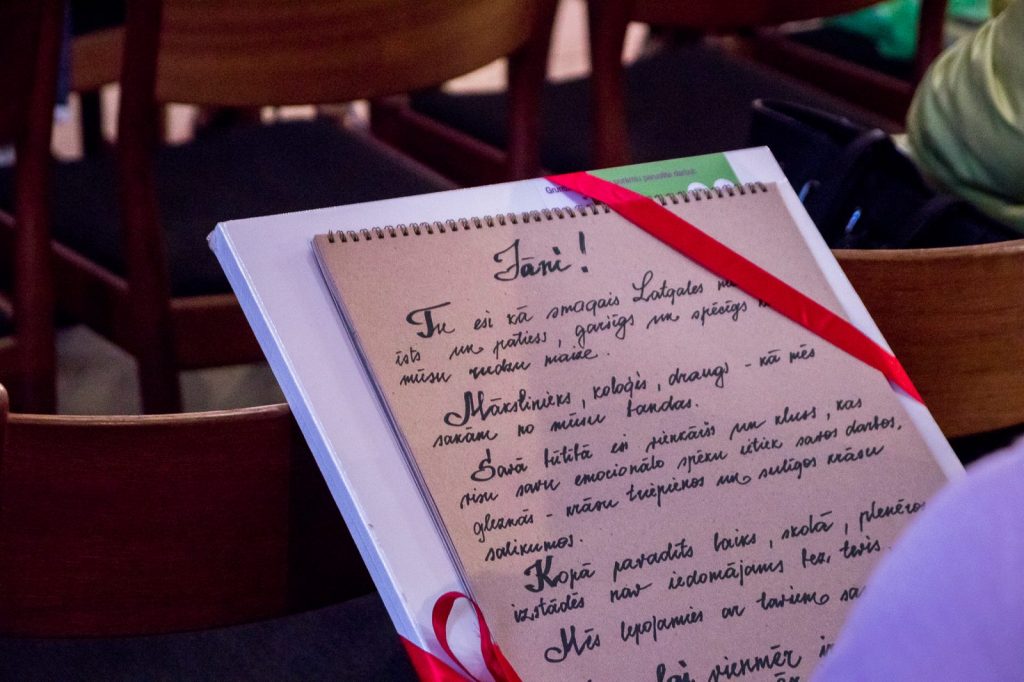 pirmo darbu
Jāni!
Tu esi kā smagais Latgales
īsts un patiess, garšīgs un spēcīgs
mūsu rudzu maize.
Mākslinieks, koloģis, draugs - kā mēs
sakām no mūsu bandas.
Savā būtībā esi vienkāršs un kluss, kas
visu savu emocionālo spēku ietiek savos darbos,
gleznās - krāsu triepienos un sulīgos krāsu
salikumos.
Kopā pavadīts laiks, skolā, plenēros
izstādēs nav iedomājams bez tevis.
Mēs lepojamies ar taviem
lai vienmēr